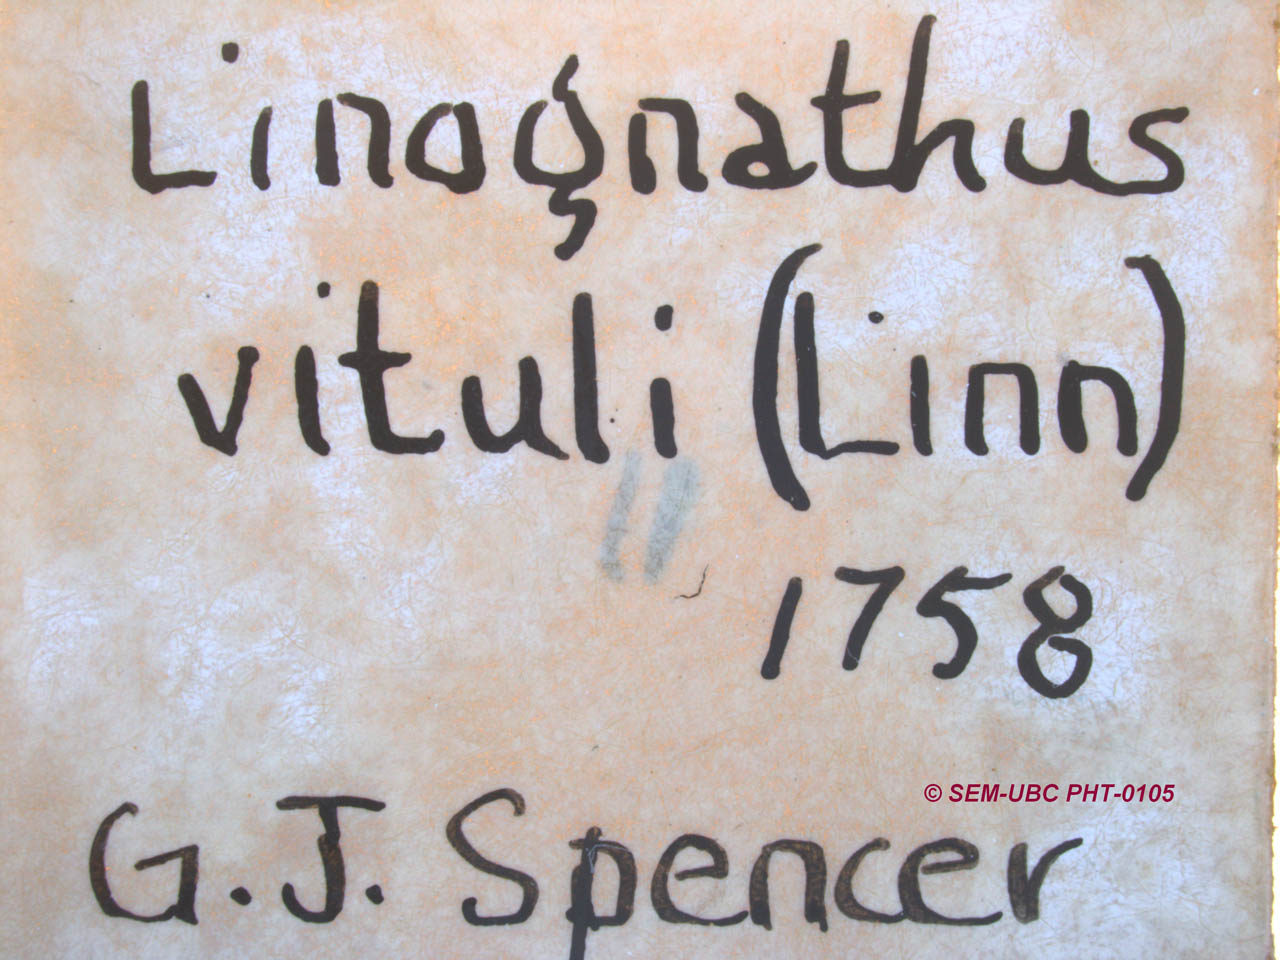 Linognathus
vituli (Linn)
1758
© SEM-UBC PHT-0105
G. J. Spencer